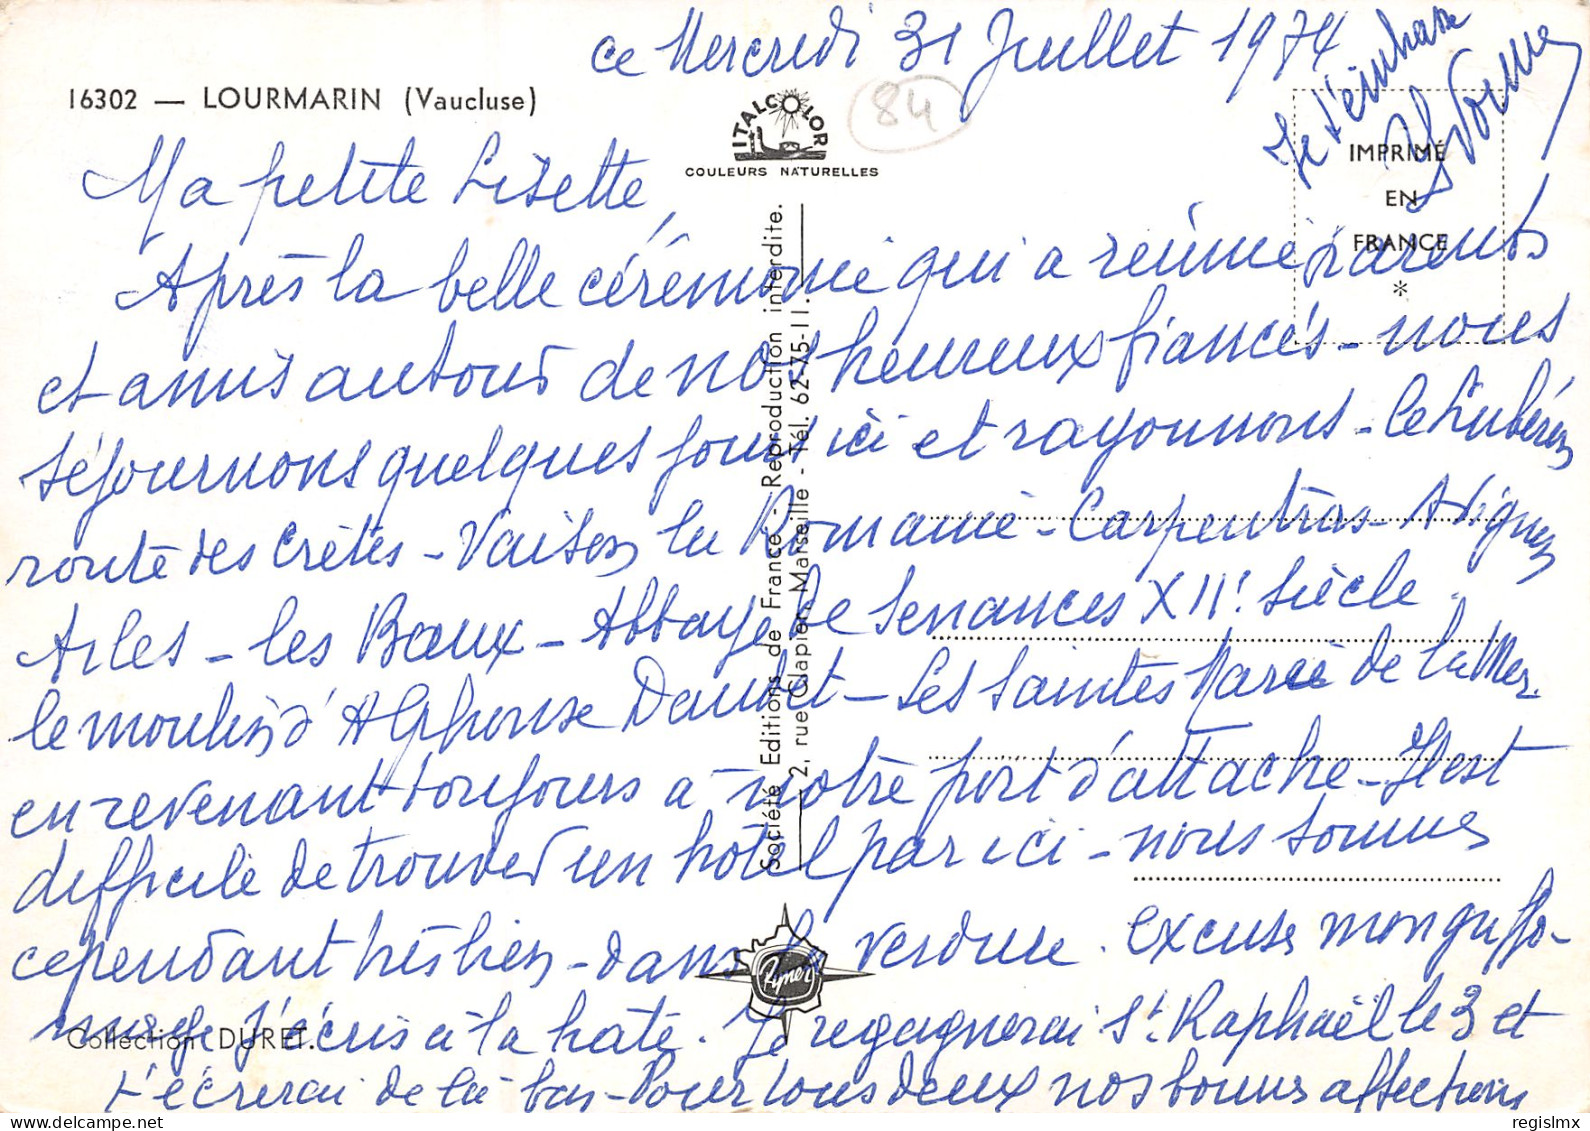 ce Mercredi 31 Juillet 1974
16302 — LOURMARIN (Vaucluse)
84
ITALCOLOR
COULEURS NATURELLES
Je t'embrasse
IMPRIMÉ
EN
FRANCE
*
Ma petite Lisette,
Après la belle cérémonie qui a réuni parents
et amis autour de nos heureux fiancés – nous
séjournons quelques jours ici et rayonnons – Le Lubéron
route des crêtes – Vaison la Romaine – Carpentras – Avignon
Arles – les Baux – Abbaye de Senances XIIe siècle.
le moulin d'Alphonse Daudet – Les Saintes Marie de la Mer.
en revenant toujours à notre port d'attache – Il est
difficile de trouver un hôtel par ici – nous sommes
cependant très bien – dans la verdure. Excuse mon griffo-
nnage j'écris à la hate. Je regagnerai St. Raphaël le 3 et
t'écrirai de là-bas – Pour tous deux nos bonnes affections
Société Editions de France - Reproduction interdite.
2, rue Clapier, Marseille - Tél. 62-75-11.
Rymer
Collection DURET.
regislmx
www.delcampe.net